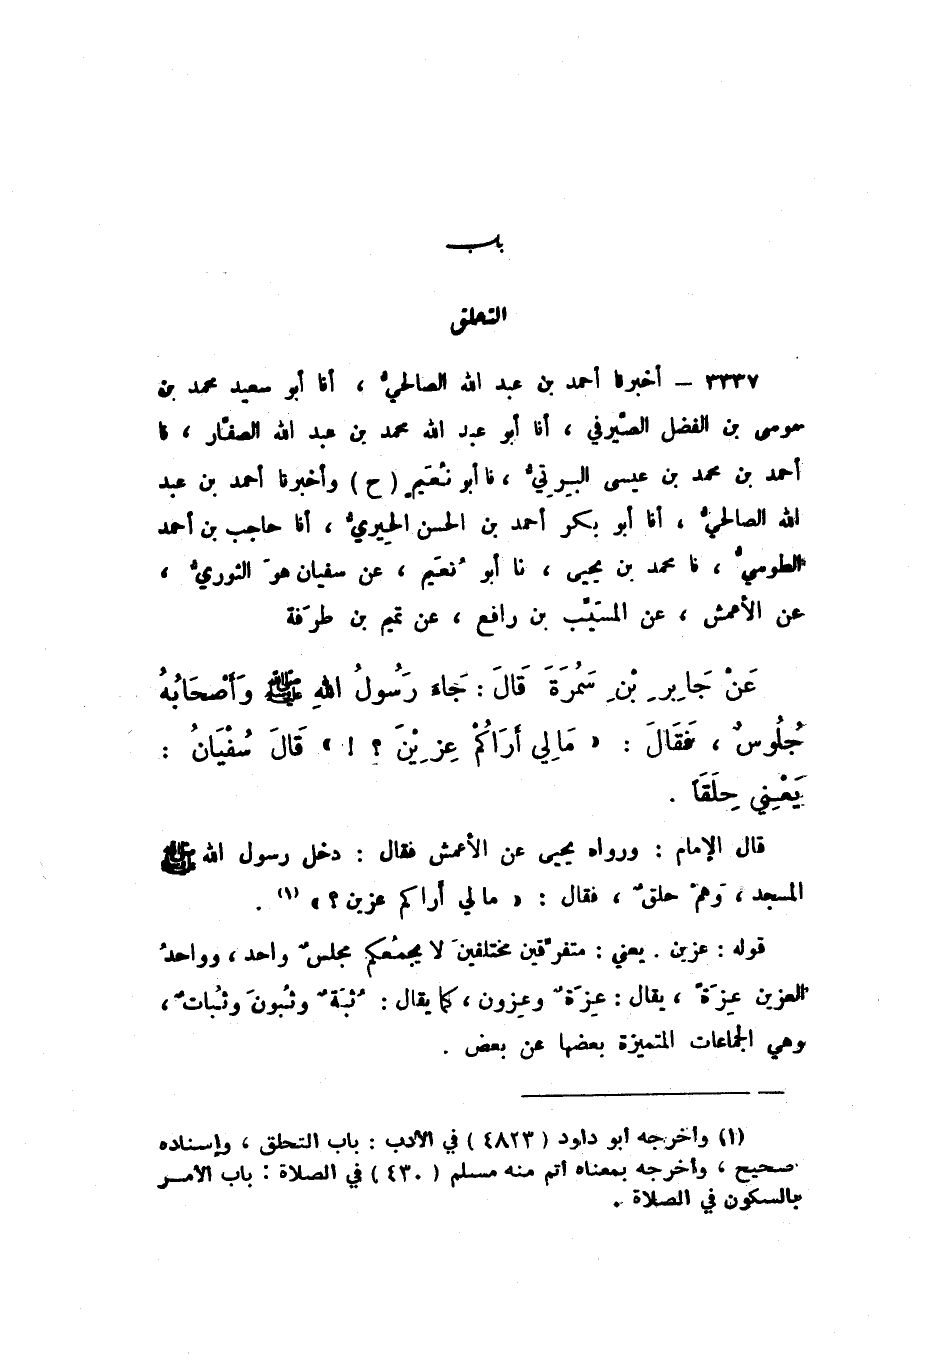 باب
التحلق
٣٣٣٧ – أخبرنا أحمد بن عبد الله الصالحيُّ ، أنا أبو سعيد محمد بن
موسى بن الفضل الصَّيرفي ، أنا أبو عبد الله محمد بن عبد الله الصفَّار ، نا
أحمد بن محمد بن عيسى البِرْتيُّ ، نا أبو نُعَيمٍ ( ح ) وأخبرنا أحمد بن عبد
الله الصالحيُّ ، أنا أبو بكر أحمد بن الحسن الحِيريُّ ، أنا حاجب بن أحمد
الطوسيُّ ، نا محمد بن يحيى ، نا أبو نُعَيم ، عن سفيان هوَ الثوريُّ ،
عن الأعمش ، عن المسَيَّب بن رافع ، عن تميم بن طرَفة
عَنْ جَابِرِ بْنِ سَمُرَةَ قَالَ : جَاءَ رَسُولُ اللهِ ﷺ وَأَصْحَابُهُ
جُلُوسٌ ، فَقَالَ : « مَالِي أَرَاكُمْ عِزِيْنَ ؟ ! » قَالَ سُفْيَانُ :
يَعْنِي حِلَقَاً .
قال الإمام : ورواه يحيى عن الأعمش فقال : دخل رسول الله ﷺ
المسجد ، وَهمْ حلقٌ ، فقال : « مالي أراكم عزين ؟ » (١) .
قوله : عزين . يعني : متفرِّقين مختلفينَ لا يجمعُكم مجلسٌ واحد ، وواحدُ
العزين عِزَةٌ ، يقال : عِزَةٌ وعِزون ، كما يقال : ثُبَةٌ وثُبونَ وثُباتٌ ،
وهي الجماعات المتميزة بعضها عن بعض .
(١) وأخرجه أبو داود ( ٤٨٢٣ ) في الأدب : باب التحلق ، وإسناده
صحيح ، وأخرجه بمعناه أتم منه مسلم ( ٤٣٠ ) في الصلاة : باب الأمر
بالسكون في الصلاة .